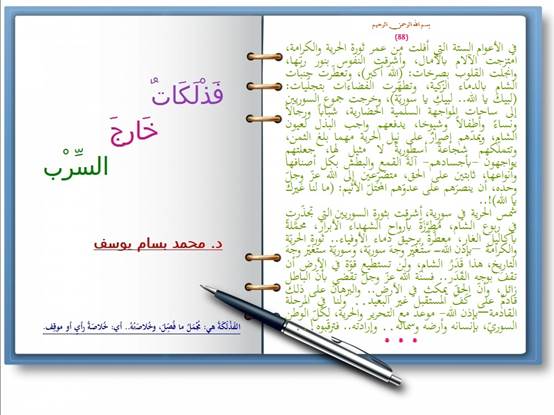 بسم الله الرحمن الرحيم
(88)
في الأعوام الستة التي أفلت من عمر ثورة الحرية والكرامة،
امتزجت الآلام بالآمال، وأشرقت النفوس بنور ربّها،
وانجلت القلوب بصرخات: (الله أكبر)، وتعطّرت جنبات
الشام بالدماء الزكية، وتطهّرت الفضاءات بتجليات:
(لبيك يا الله.. لبيكِ يا سوريّة)، وخرجت جموع السوريين
إلى ساحات المواجهة السلمية الحضارية، شباباً ورجالاً
ونساءً وأطفالاً وشيوخاً، يدفعهم واجب البذل لعيون
الشام، ويمدّهم إصرارٌ على نيل الحرية مهما بلغ الثمن،
وتتملّكهم شجاعةٌ أسطوريةٌ لا مثيل لها، جعلتهم
يواجهون -بأجسادهم- آلةَ القمع والبطش بكل أصنافها
وأنواعها، ثابتين على الحق، متضرّعين إلى الله عزّ وجلّ
وحده، أن ينصرَهم على عدوّهم المحتلّ الأثيم: (ما لنا غيرك
يا الله)!..
شمس الحرية في سورية، أشرقت بثورة السوريين التي تجذّرت
في ربوع الشام، مطرّزةً بأرواح الشهداء الأبرار، محمّلةً
بأكاليل الغار، معطّرةً برحيق دماء الأوفياء.. ثورة الحرية
والكرامة -بإذن الله- ستغيّر وجه سورية، وسورية ستغيّر وجه
التاريخ، هذا قَدَرُ الشام، ولن تستطيع قوّة في الأرض أن
تقف بوجه القَدَر.. فسنّة الله عزّ وجلّ تقضي بأن الباطل
زائل، وأن الحقّ يمكث في الأرض.. والبرهان على ذلك
قادمٌ على كفّ المستقبل غير البعيد.. ولنا في المرحلة
القادمة -بإذن الله- موعدٌ مع التحرير والحرية، لكلّ الوطن
السوريّ، بإنسانه وأرضه وسمائه.. وإرادته.. فترقّبوه!..
فَذْلَكَاتٌ
خَارِجَ
السِّرْب
د. محمد بسام يوسف
الفَذْلَكَةُ هي: مُجْمَلُ ما فُصِّلَ، وخُلاصَتُهُ.. أي: خُلاصَةُ رأيٍ أو موقف.